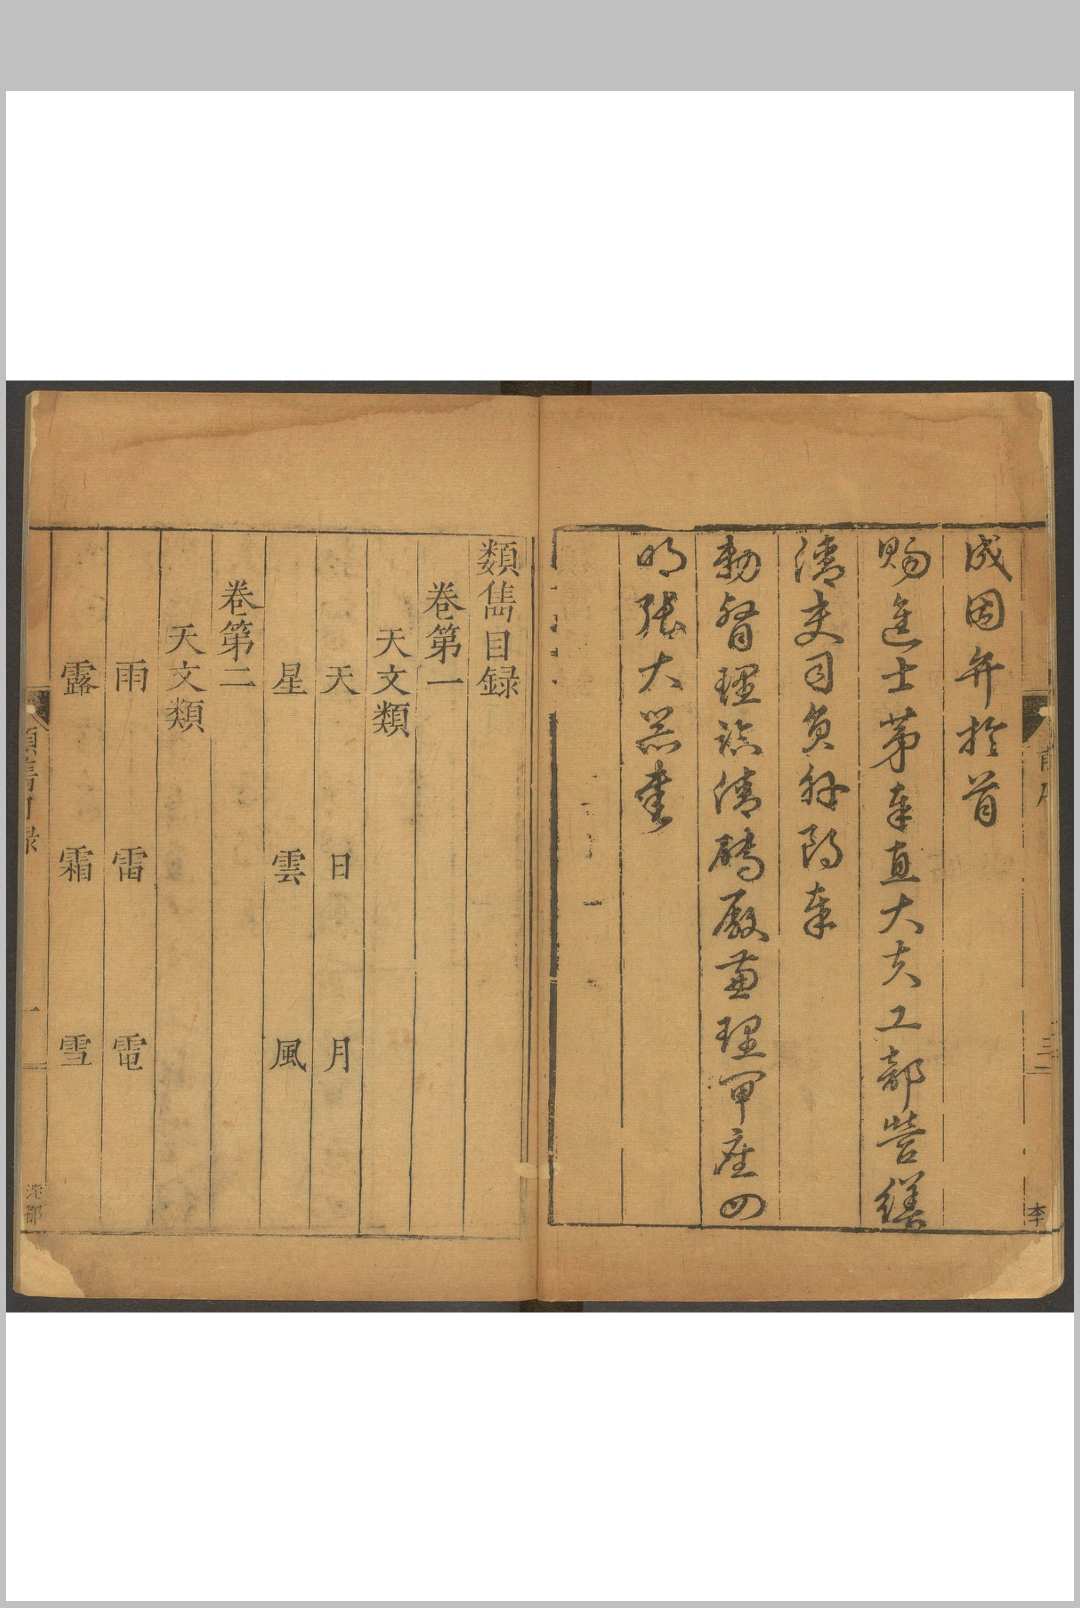 成因弁於首
賜進士第奉直大夫工部營繕
清吏司員外郎奉
勅督理臨清磚厰兼理甲座四
明張大器書
類雋目録
卷第一
天文類
天 日 月
星 雲 風
卷第二
天文類
雨 雷 電
露 霜 雪
類雋目録 一